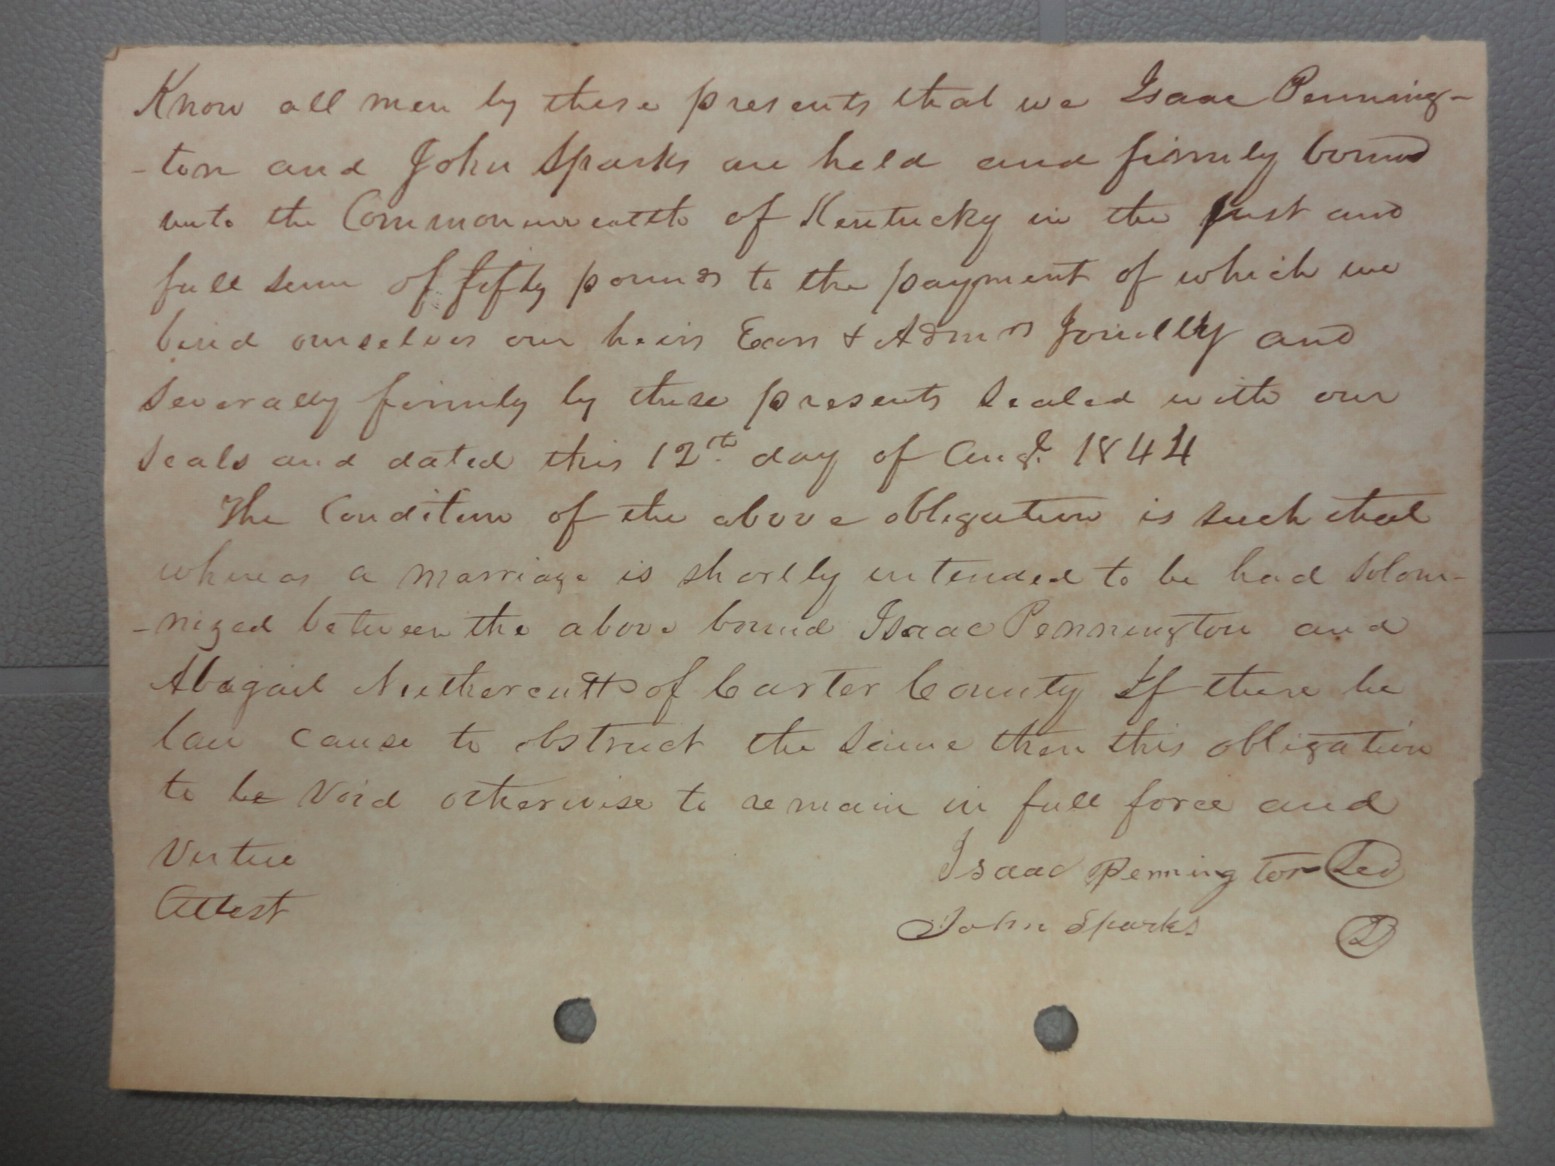 Know all men by these presents that we Isaac Penning-
-ton and John Sparks are held and firmly bound
unto the Commonwealth of Kentucky in the just and
full sum of fifty pounds to the payment of which we
bind ourselves our heirs Exors & Admrs Jointlly and
Severally firmly by these presents Sealed with our
Seals and dated this 12th day of Augt. 1844
The Condition of the above obligation is such that
whereas a marriage is shortly intended to be had Solom-
-nized between the above bound Isaac Pennington and
Abagail Nethercutt of Carter County If there be
law cause to obstruct the Same then this obligation
to be Void otherwise to remain in full force and
Vertue Isaac Pennington
Attest John Sparks